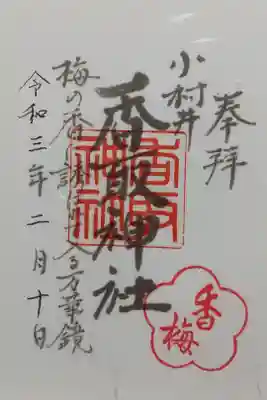 奉拝
小村井
香取神社
梅の香 入る万華鏡
令和三年二月十日
香取神社
香梅